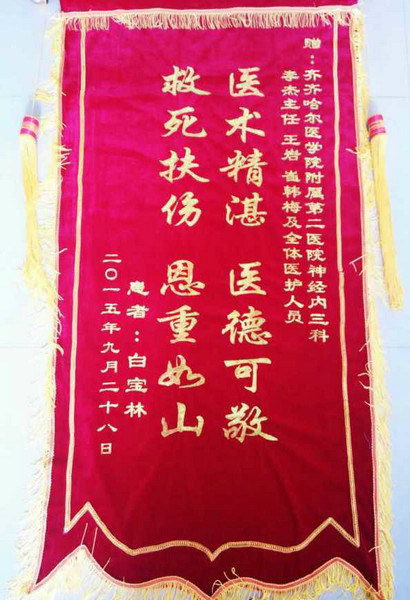 赠：齐齐哈尔医学院附属第二医院神经内三科
李杰主任 王岩 崔韩梅及全体医护人员
医术精湛 医德可敬
救死扶伤 恩重如山
患者：白宝林
二〇一五年九月二十八日